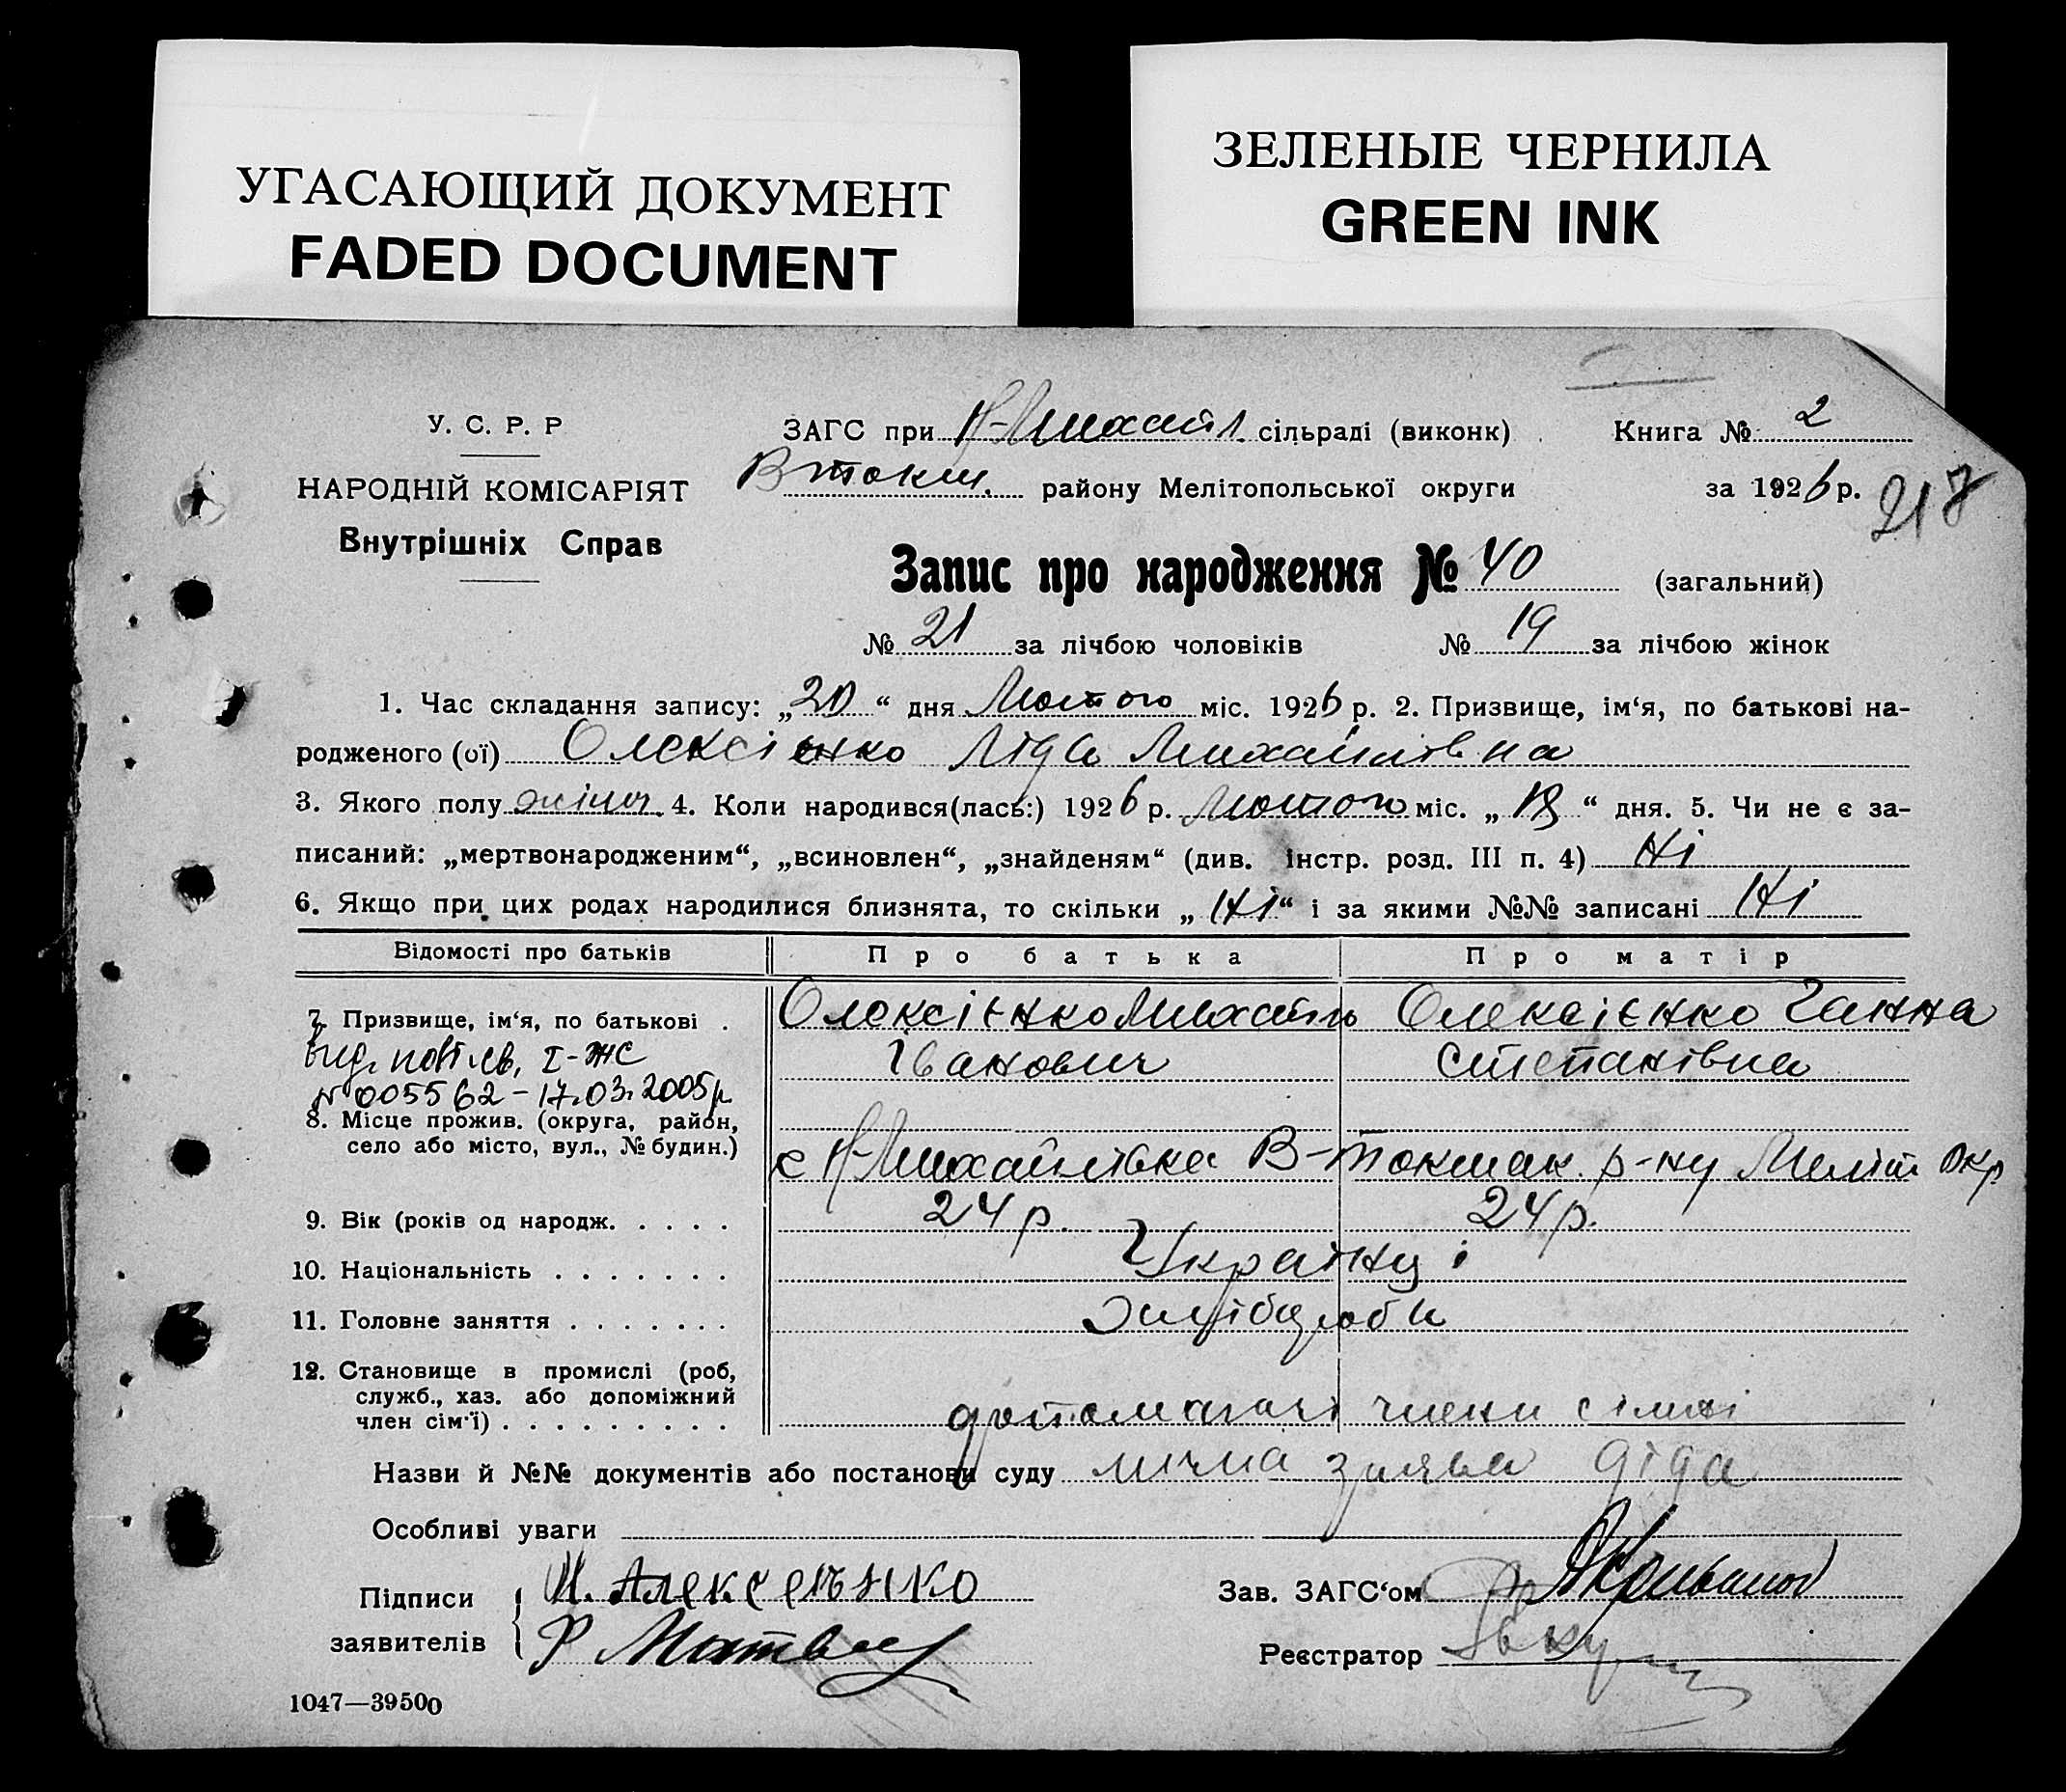 УГАСАЮЩИЙ ДОКУМЕНТ
FADED DOCUMENT
ЗЕЛЕНЫЕ ЧЕРНИЛА
GREEN INK
У. С. Р. Р
НАРОДНІЙ КОМІСАРІЯТ
Внутрішніх Справ
ЗАГС при Н-Михайл. сільраді (виконк)
Книга № 2
В токм. району Мелітопольської округи
за 1926 р.
217
Запис про народження № 40 (загальний)
№ 21 за лічбою чоловіків № 19 за лічбою жінок
1. Час складання запису: „20“ дня Лютого міс. 1926 р. 2. Призвище, ім‘я, по батькові на-
родженого (ої) Олексієнко Ліда Михайлівна
3. Якого полу жіноч. 4. Коли народився(лась:) 1926 р. Лютого міс. „18“ дня. 5. Чи не є за-
писаний: „мертвонародженим“, „всиновлен“, „знайденям“ (див. інстр. розд. III п. 4) Ні
6. Якщо при цих родах народилися близнята, то скільки „Ні“ і за якими №№ записані Ні
Відомості про батьків Про батька Про матір
7. Призвище, ім‘я, по батькові . Олексієнко Михайло Олексієнко Ганна
Іванович Степанівна
Вид. повт. св. I-ЖС
№ 005562 – 17.03.2005р.
8. Місце прожив. (округа, район,
село або місто, вул., № будин.) с Н-Михайлівка В-токмак. р-ну Меліт окр
9. Вік (років од народж. . . . . 24 р. 24 р.
10. Національність . . . . . . . Українці
11. Головне заняття . . . . . . . Хлібороби
12. Становище в промислі (роб,
служб., хаз. або допоміжний
член сім‘ї) . . . . . . . . . допомагачі члени сімьї
Назви й №№ документів або постанови суду лична заява діда
Особливі уваги
Підписи
заявителів
И. Алексеънко
Зав. ЗАГС‘ом
Реєстратор
1047—39500